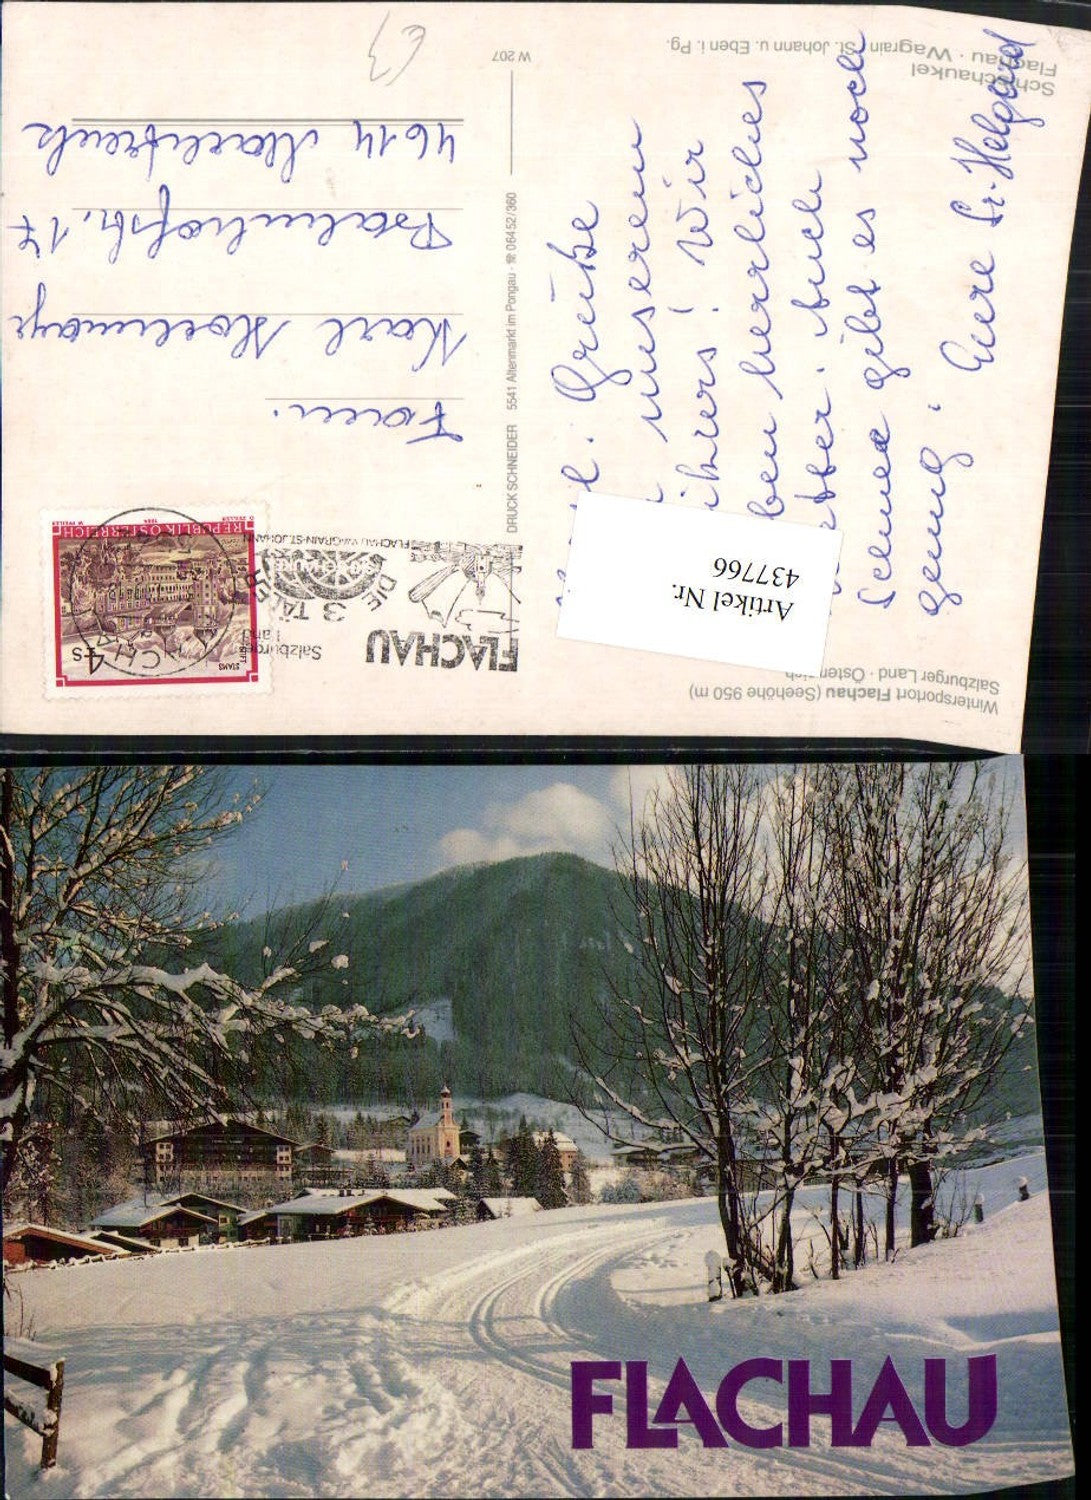 Schischaukel
Flachau · Wagrain · St. Johann u. Eben i. Pg.
W 207
Grüße
unserem
! Wir
herrliches
. Auch
Schnee gibt es noch
genug.
Eure Gr. Helgard
Fam.
Karl
Bahnhofstr. 17
4614 Marchtrenk
DRUCK SCHNEIDER 5541 Altenmarkt im Pongau · ☎ 06452/360
REPUBLIK ÖSTERREICH
STIFT
STAMS
4 S
FLACHAU
Salzburger
Land
DIE 3 TÄLER
SKISCHAUKEL
FLACHAU-WAGRAIN-ST.JOHANN
Artikel Nr.
437766
Wintersportort Flachau (Seehöhe 950 m)
Salzburger Land · Österreich
FLACHAU